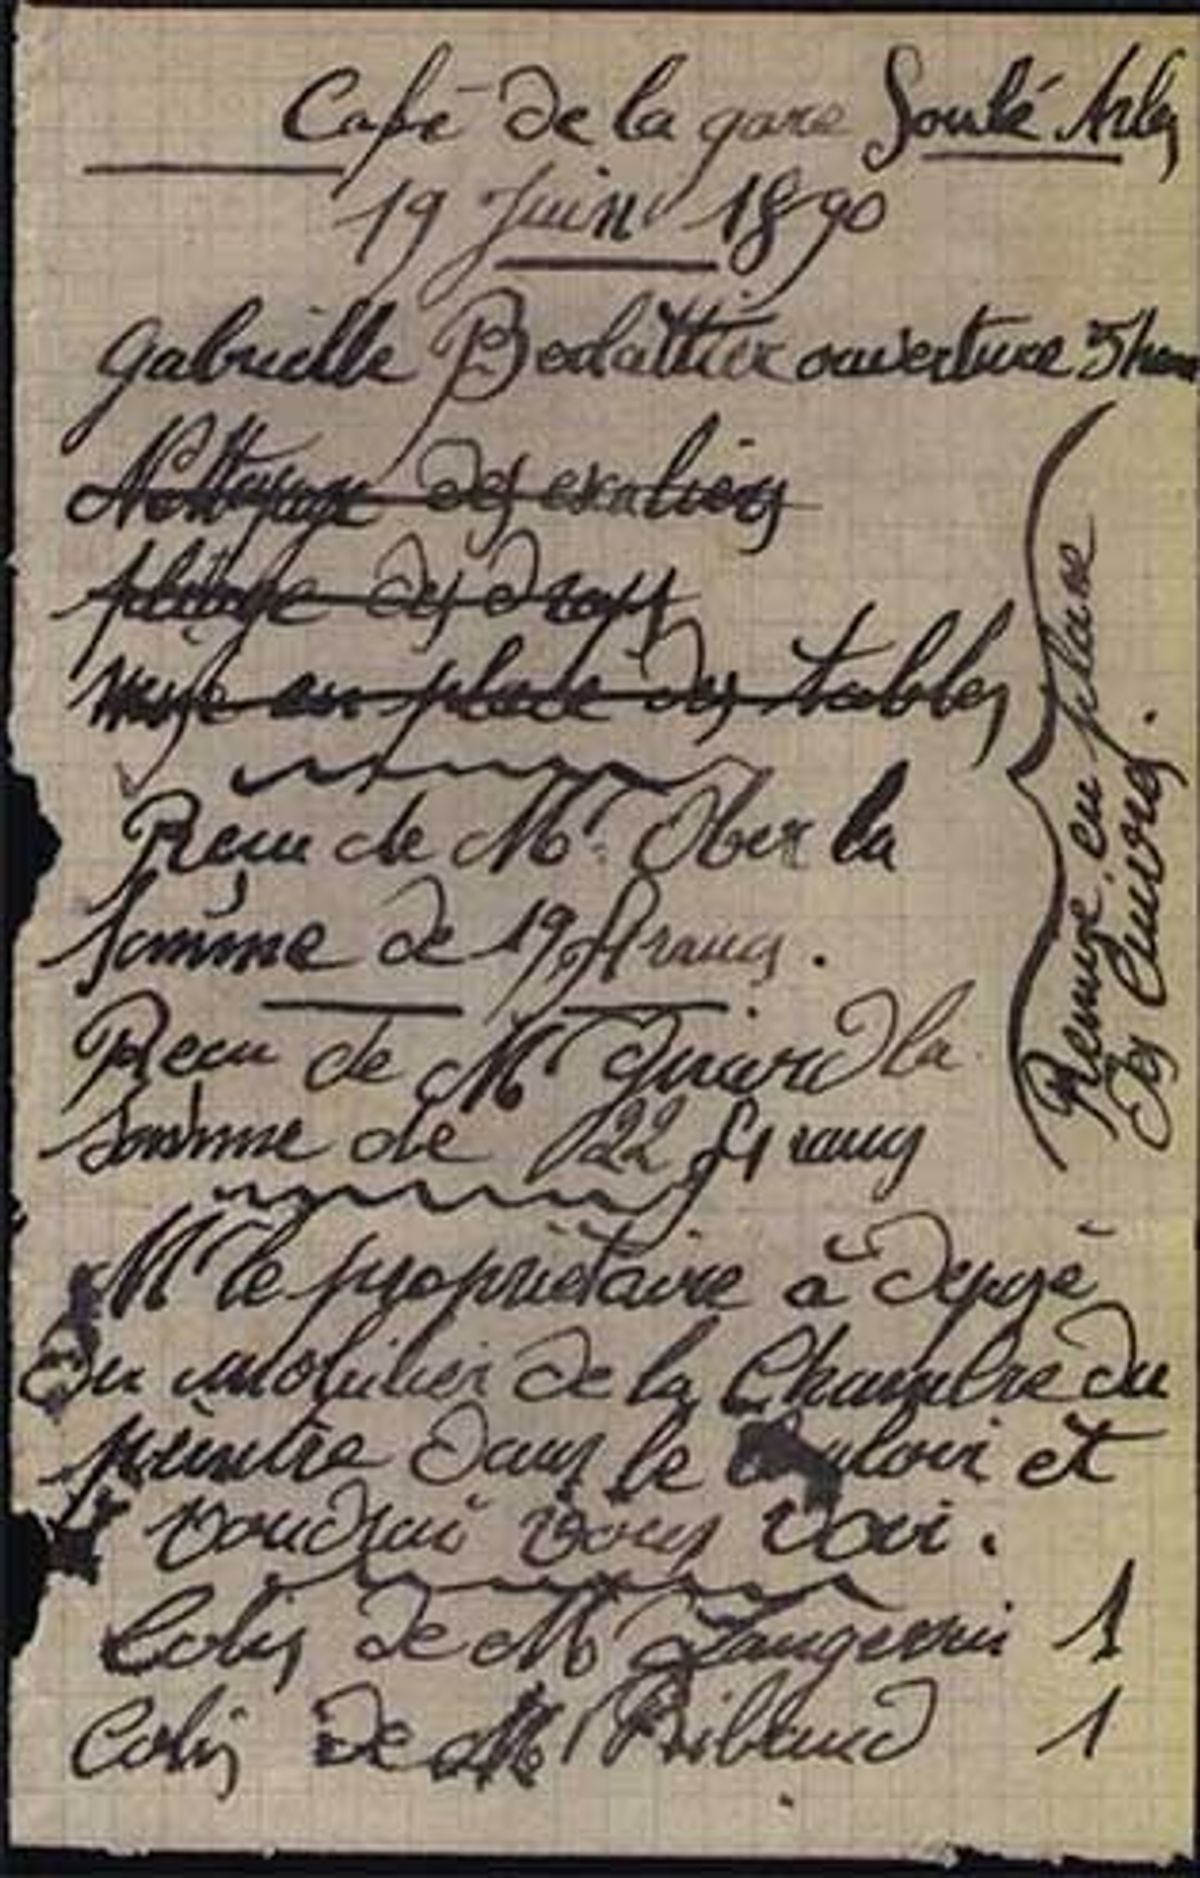 Café de la gare Soulé Arles
19 Juin 1890
Gabrielle Berlattier ouverture 5 heu
Nettoyage des escaliers
pliage des draps
mise en place des tables
Remise en place
des Cuivres.
Recu de Mr. Ober la
Somme de 19 ffrancs.
Recu de Mr Guiard la
Somme de 22 ffrancs
Mr le propriétaire à déposé
du mobilier de la Chambre du
peintre dans le Couloir et
voudrai vous voir.
Colis de Mr 1
Colis de Mr Ribaud 1